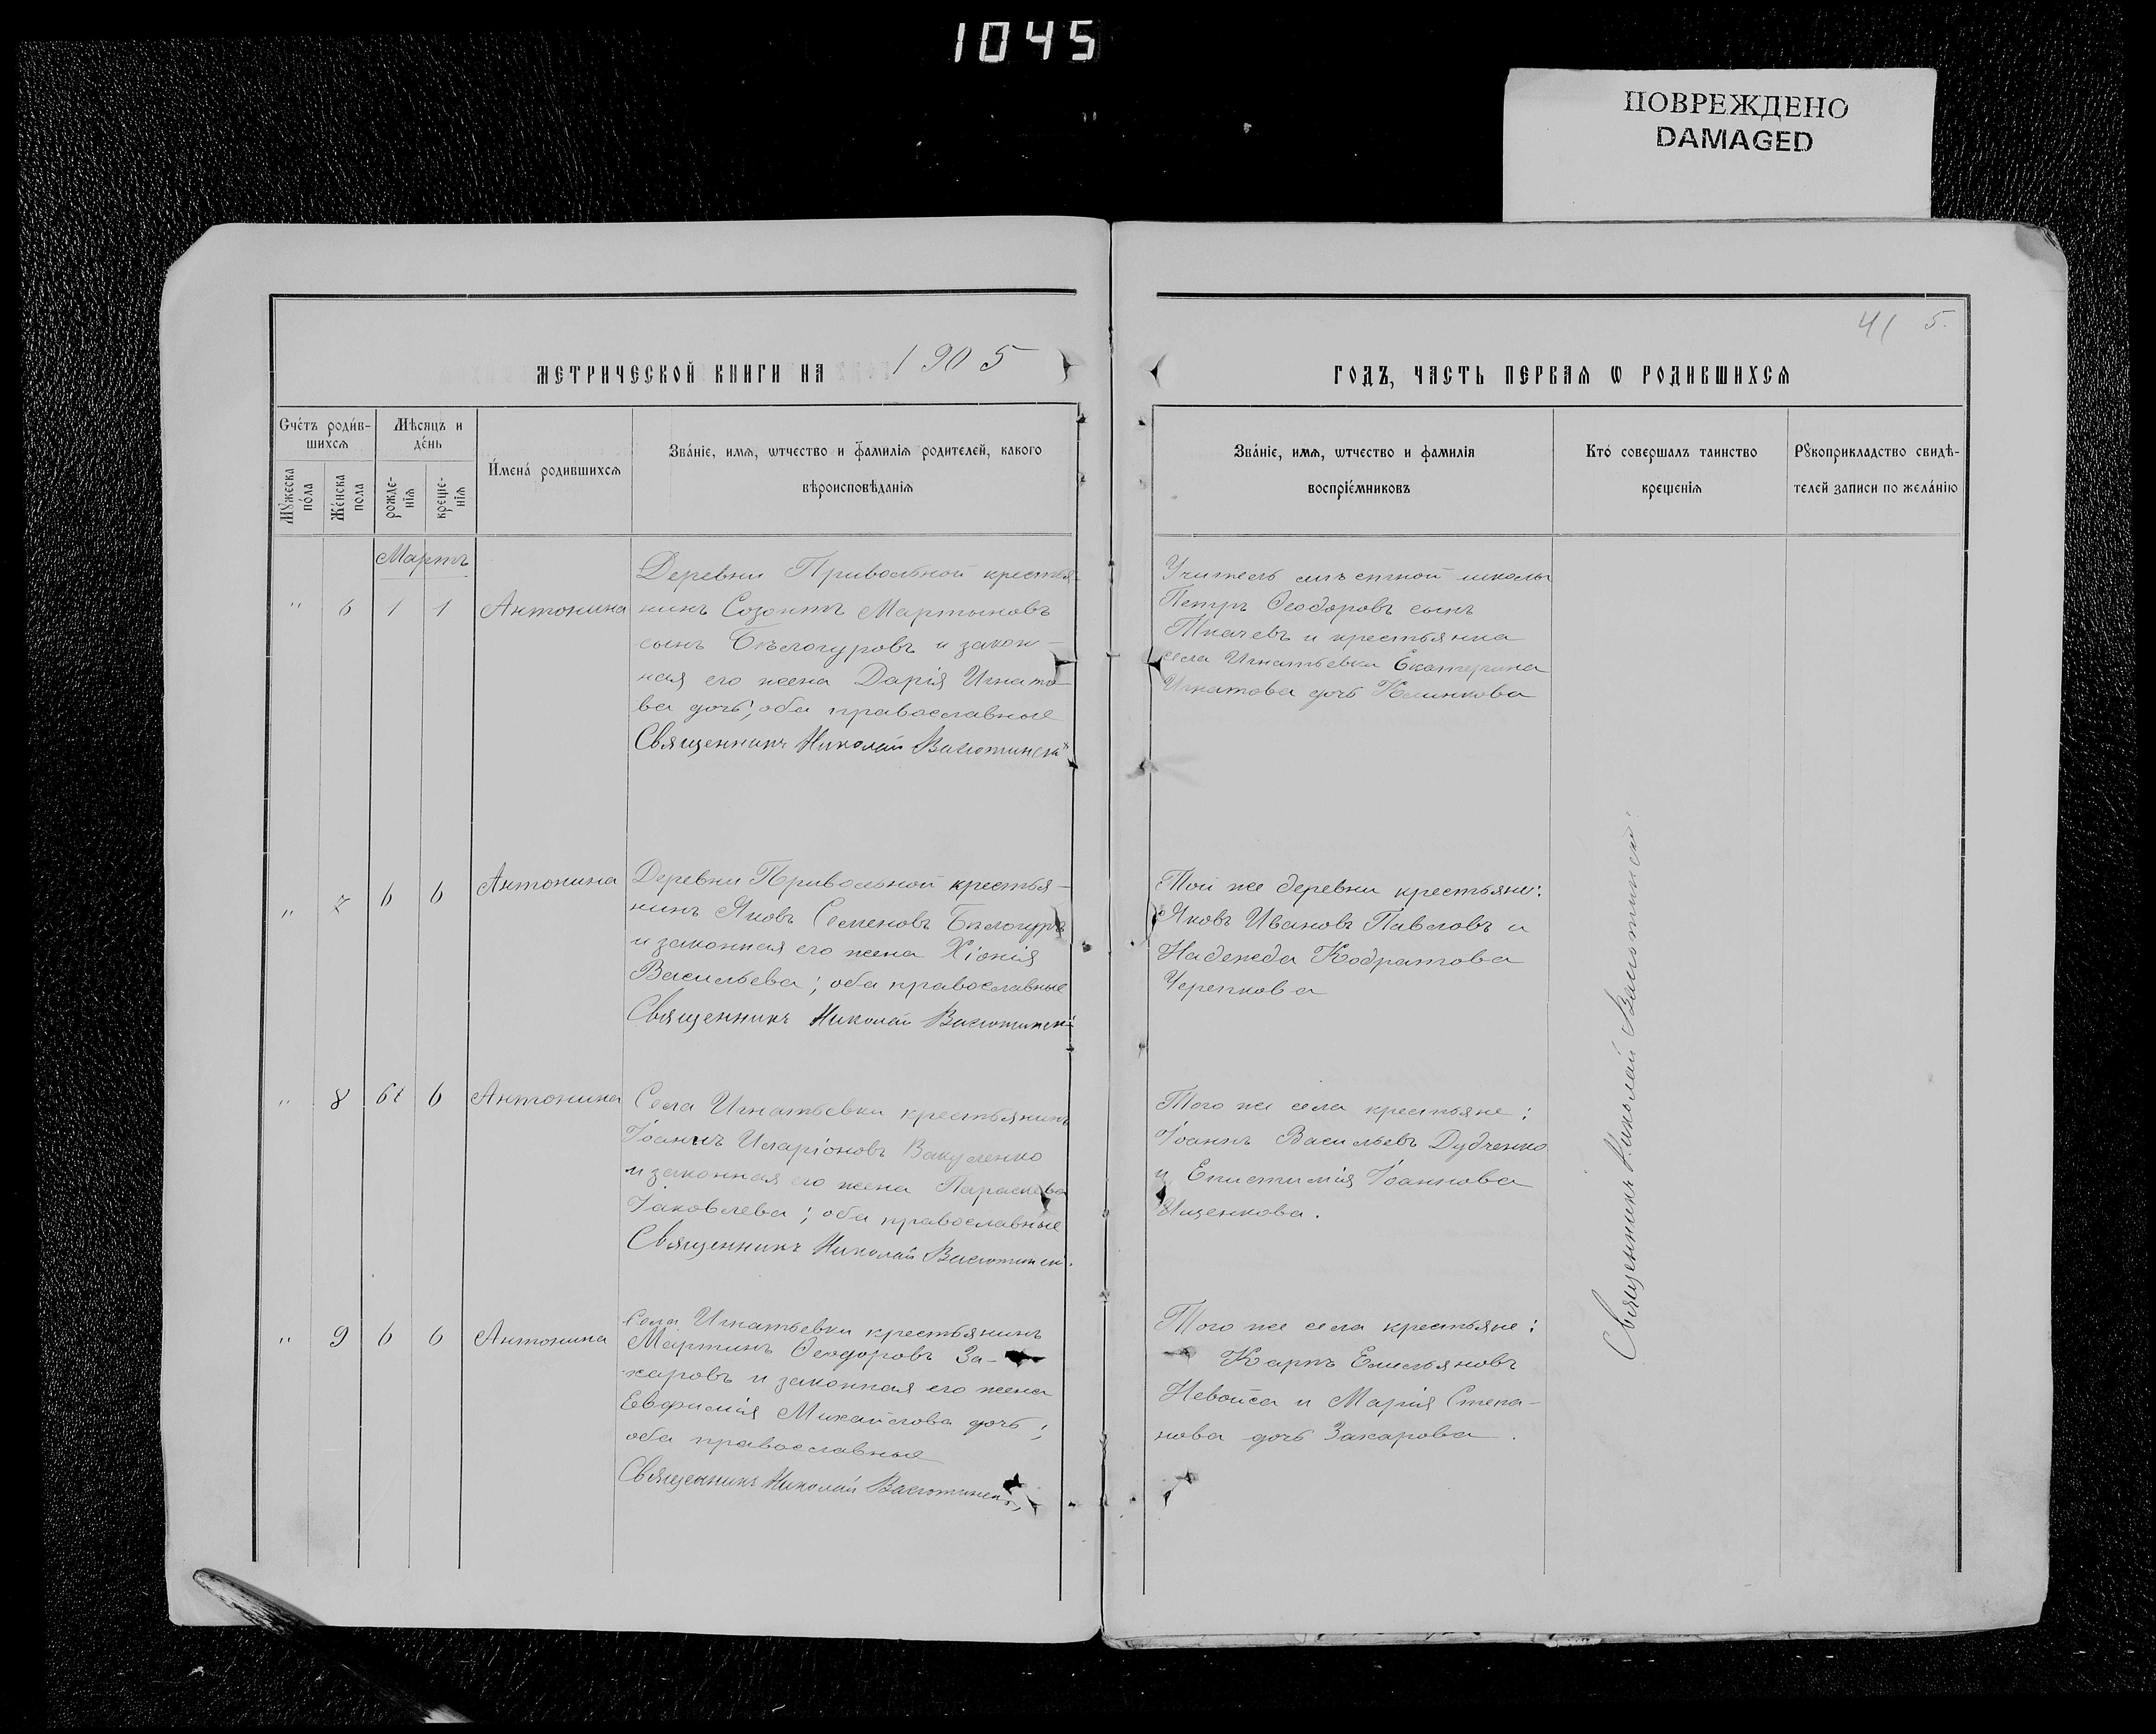 1045
ПОВРЕЖДЕНО
DAMAGED
41 5.
МЕТРИЧЕСКОЙ КНИГИ НА 1905
ГОДЪ, ЧАСТЬ ПЕРВАѦ Ѡ РОДИВШИХСѦ
Счétъ роди́в-
шихсѧ
Мѣсяцъ и
дéнь
Мꙋжеска
пóла
Жéнска
пола
рожде-
нїѧ
креще-
нїѧ
И́мена́ родившихсѧ
Звáнїе, имѧ, ѡтчество и фамилїѧ родителей, какого
вѣроисповѣданїѧ
Звáнїе, имѧ, ѡтчество и фамилїѧ
воспрїéмниковъ
Ктó совершалъ таинство
крещенїѧ
Рꙋкоприкладство свидѣ-
телей записи по желáнїю
Мартъ
" 6 1 1 Антонина
Деревни Привольной крестья-
нинъ Созонтъ Мартыновъ
сынъ Бѣлогуровъ и закон-
ная его жена Дарія Игнато-
ва дочь; оба православные
Священникъ Николай Васютинск
Учитель мѣстной школы
Петръ Ѳеодоровъ сынъ
Ткачевъ и крестьянка
села Игнатьевки Екатерина
Игнатова дочь Калинкова
" 7 6 6 Антонина
Деревни Привольной крестья-
нинъ Яковъ Семеновъ Бѣлогуровъ
и законная его жена Хіонія
Васильева; оба православные
Священникъ Николай Васютинск
Той же деревни крестьяне:
Яковъ Ивановъ Павловъ и
Надежда Кодратова
Черепкова
" 8 6 6 Антонина
Села Игнатьевки крестьянинъ
Іоаннъ Иларіоновъ Вакуленко
и законная его жена Параскева
Іаковлева; оба православные
Священникъ Николай Васютинск
Того же села крестьяне:
Іоаннъ Васильевъ Дудченко
и Епистимія Іоаннова
Ищенкова.
" 9 6 6 Антонина
Села Игнатьевки крестьянинъ
Мартинъ Ѳеодоровъ За-
харовъ и законная его жена
Евфимія Михайлова дочь;
оба православные
Священникъ Николай Васютинск
Того же села крестьяне:
Карпъ Емельяновъ
Невойса и Марія Степа-
нова дочь Захарова.
Священникъ Николай Васютинск